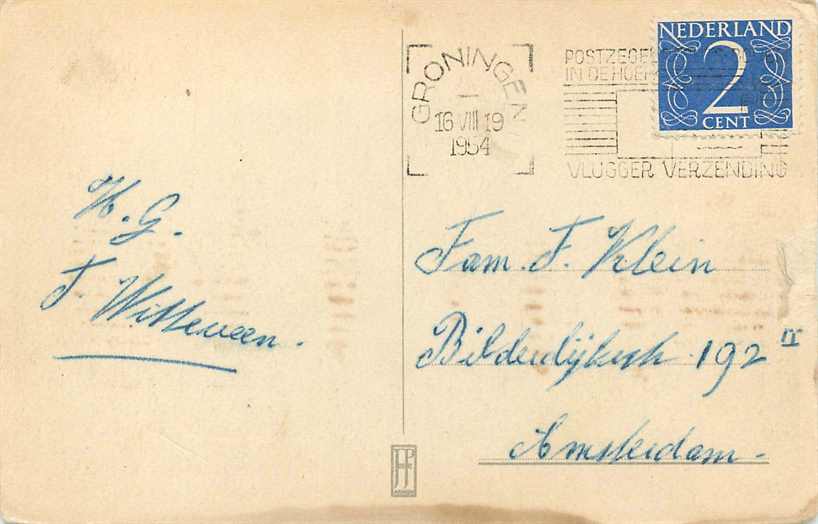 H. G.
F. Witteveen.
GRONINGEN
16 VIII 19
1954
POSTZEGEL
IN DE HOEK
VLUGGER VERZENDING
NEDERLAND
2
CENT
Fam. F. Klein
Bilderdijkstr 192 II
Amsterdam.